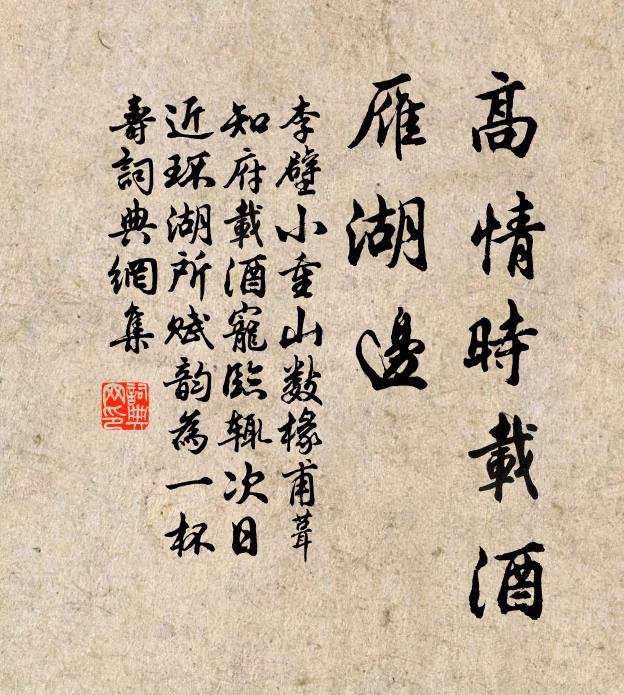 高情時載酒
雁湖邊
李壁小重山數椽甫葺
知府載酒寵臨輒次日
近環湖所賦韵為一杯
壽詞典網集
詞典網印